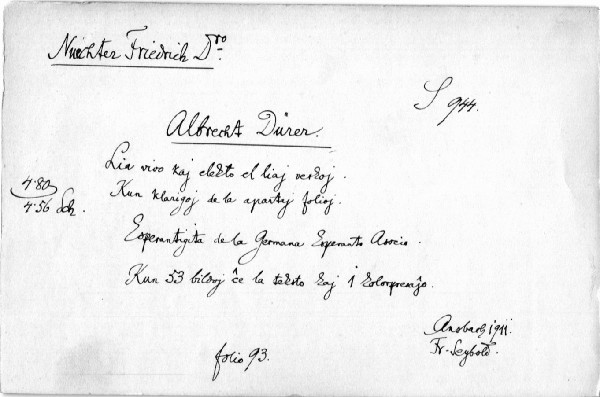 Nüchter Friedrich D-ro
S 944.
Albrecht Dürer.
Lia vivo kaj elekto el liaj verkoj.
Kun klarigoj de la apartaj folioj.
4·80
4·56 Sch.
Esperantigita de la Germana Esperanto Asocio.
Kun 53 bildoj ĉe la teksto kaj 1 kolorpresaĵo.
Ansbach 1911.
Fr. Seybold.
folio 93.